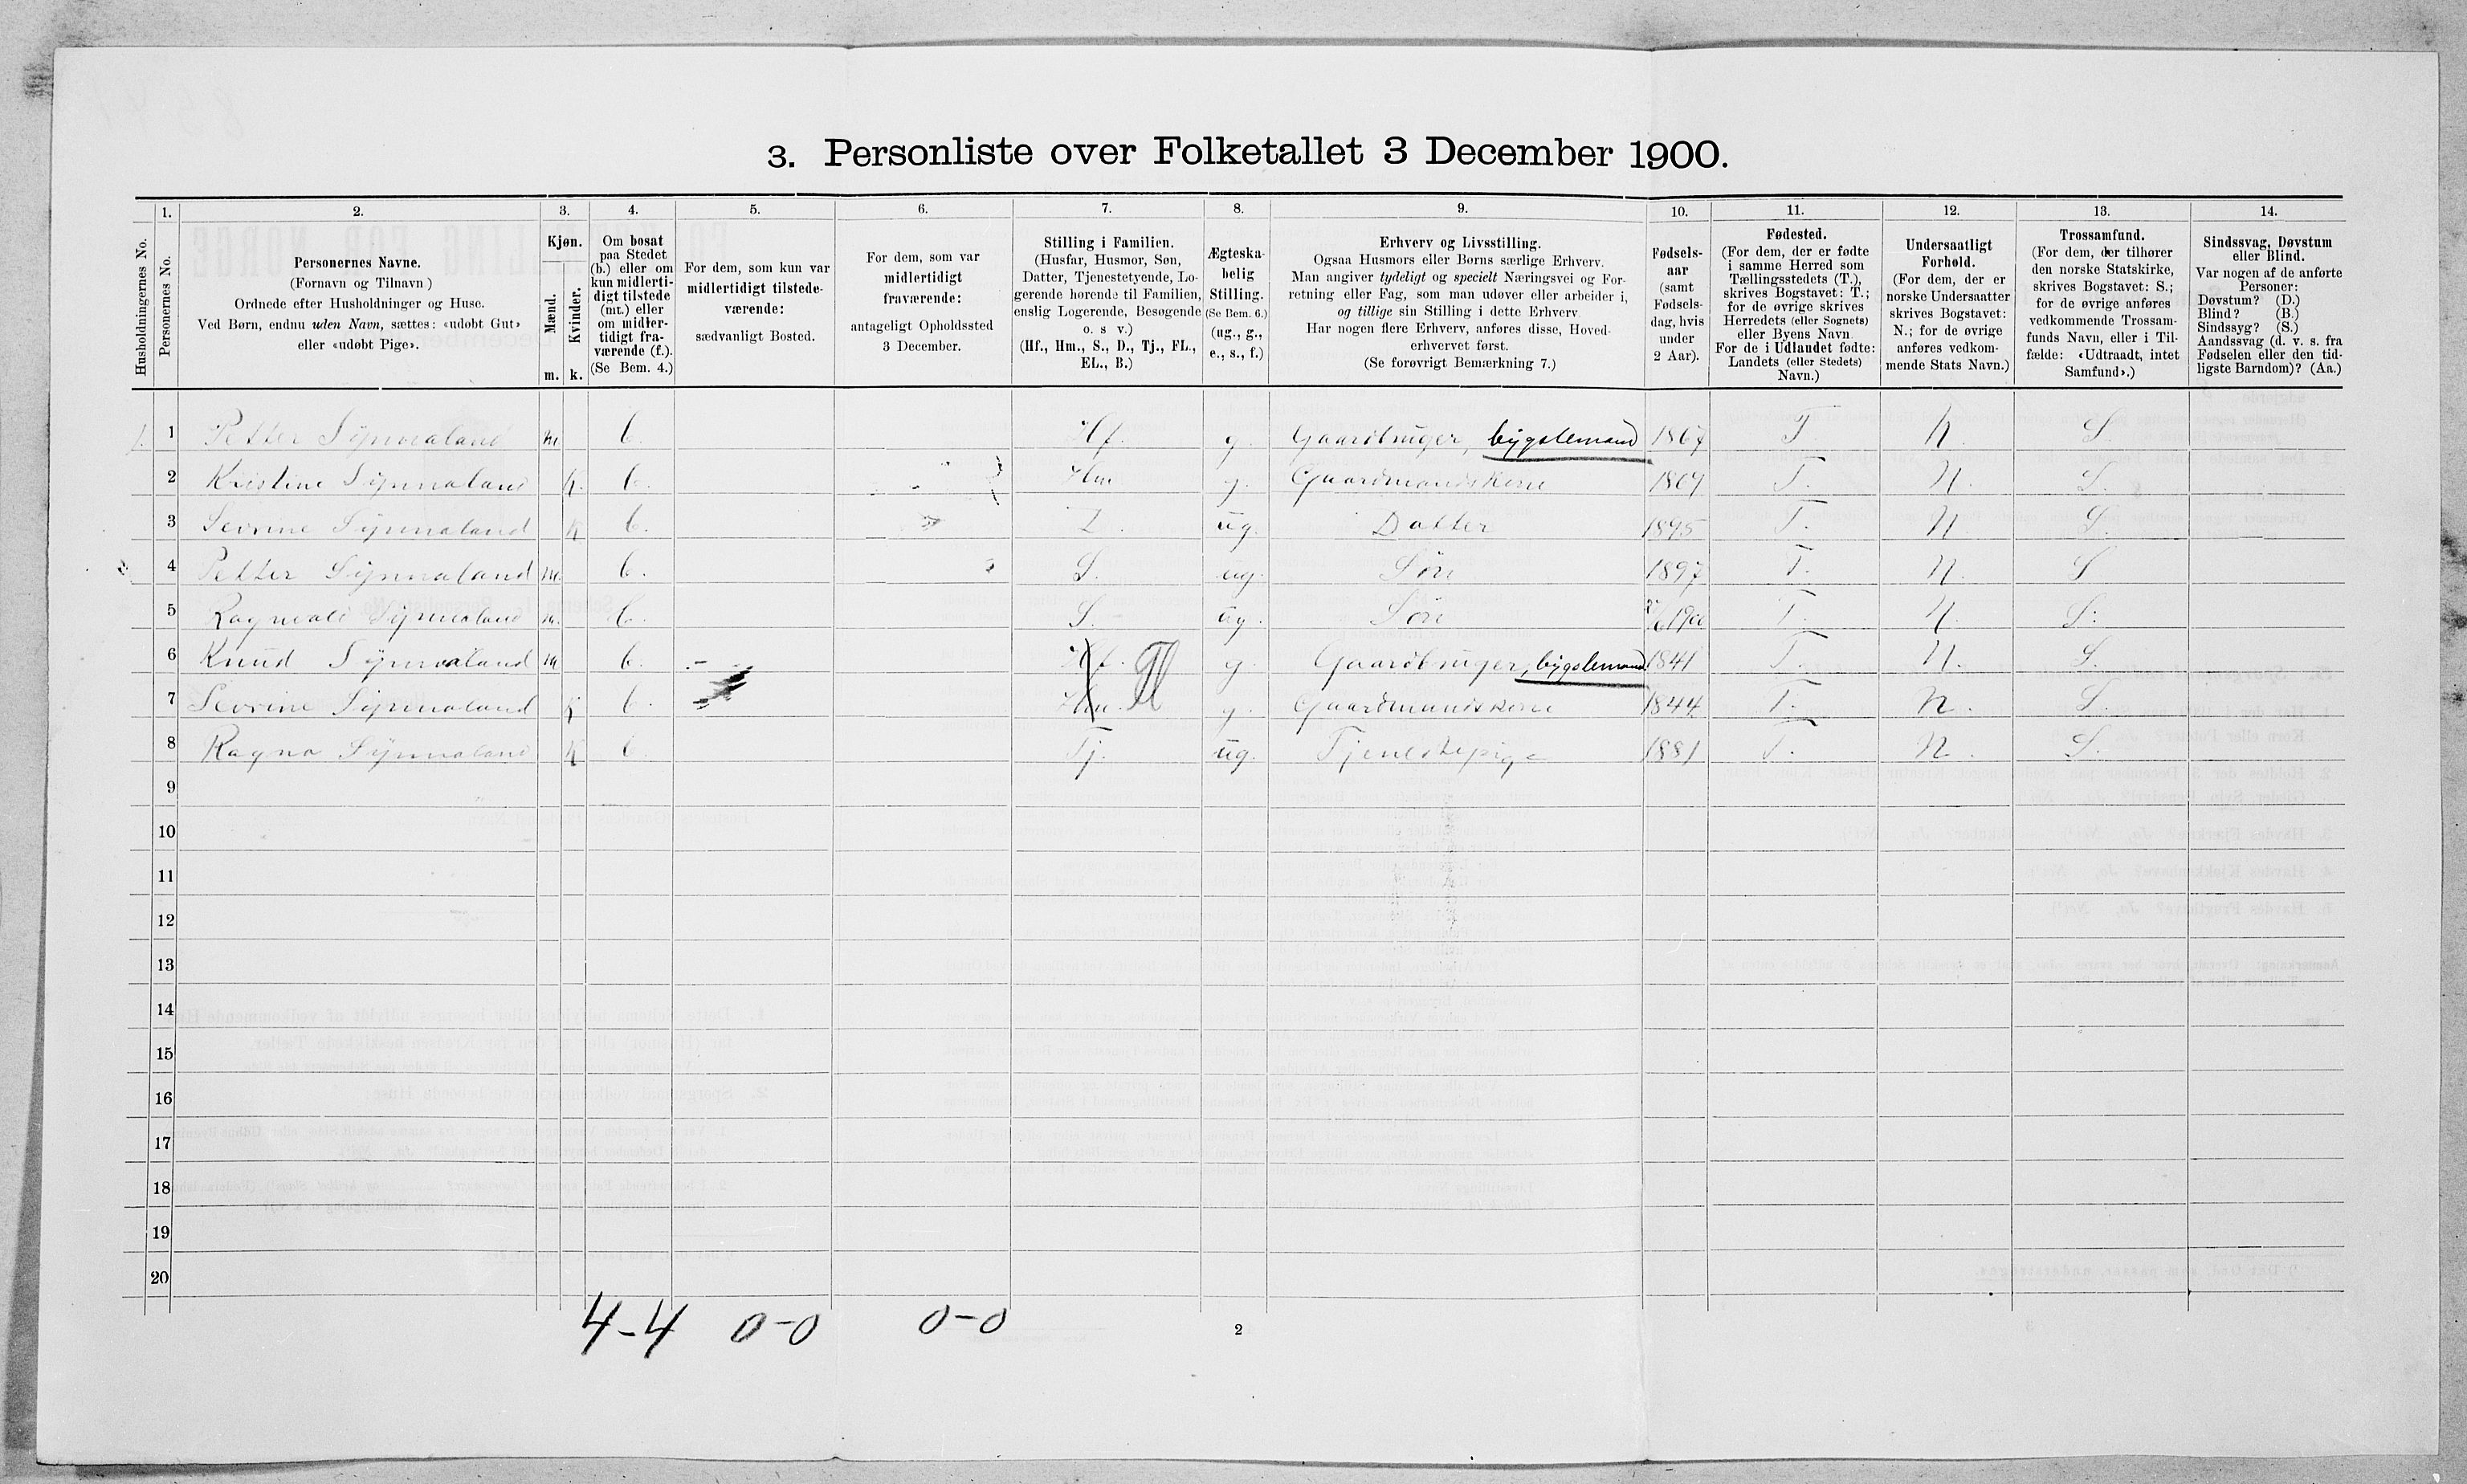 3. Personliste over Folketallet 3 December 1900.
1. 2. 3. 4. 5. 6. 7. 8. 9. 10. 11. 12. 13. 14.
Husholdningernes No.
Personernes No.
Personernes Navne.
(Fornavn og Tilnavn)
Ordnede efter Husholdninger og Huse.
Ved Børn, endnu uden Navn, sættes: «udøbt Gut»
eller «udøbt Pige».
Kjøn.
Mænd.
Kvinder.
m. k.
Om bosat
paa Stedet
(b.) eller om
kun midlerti-
digt tilstede
(mt.) eller
om midler-
tidigt fra-
værende (f.).
(Se Bem. 4.)
For dem, som kun var
midlertidigt tilstede-
værende:
sædvanligt Bosted.
For dem, som var
midlertidigt
fraværende:
antageligt Opholdssted
3 December.
Stilling i Familien.
(Husfar, Husmor, Søn,
Datter, Tjenestetyende, Lo-
gerende hørende til Familien,
enslig Logerende, Besøgende
o. s v.)
(Hf., Hm., S., D., Tj., FL.,
EL., B.)
Ægteska-
belig
Stilling.
(Se Bem. 6.)
(ug., g.,
e., s., f.)
Erhverv og Livsstilling.
Ogsaa Husmors eller Børns særlige Erhverv.
Man angiver tydeligt og specielt Næringsvei og For-
retning eller Fag, som man udøver eller arbeider i,
og tillige sin Stilling i dette Erhverv.
Har nogen flere Erhverv, anføres disse, Hoved-
erhvervet først.
(Se forøvrigt Bemærkning 7.)
Fødsels-
aar
(samt
Fødsels-
dag, hvis
under
2 Aar).
Fødested.
(For dem, der er fødte
i samme Herred som
Tællingsstedets (T.),
skrives Bogstavet: T.;
for de øvrige skrives
Herredets (eller Sognets)
eller Byens Navn.
For de i Udlandet fødte:
Landets (eller Stedets)
Navn.)
Undersaatligt
Forhold.
(For dem, der er
norske Undersaatter
skrives Bogstavet:
N.; for de øvrige
anføres vedkom-
mende Stats Navn.)
Trossamfund.
(For dem, der tilhører
den norske Statskirke,
skrives Bogstavet: S.;
for de øvrige anføres
vedkommende Trossam-
funds Navn, eller i Til-
fælde: «Udtraadt, intet
Samfund».)
Sindssvag, Døvstum
eller Blind.
Var nogen af de anførte
Personer:
Døvstum? (D.)
Blind? (B.)
Sindssyg? (S.)
Aandssvag (d. v. s. fra
Fødselen eller den tid-
ligste Barndom)? (Aa.)
1. 1 Petter Synnaland m b. Hf. g. Gaardbruger, bygslemand 1867 T. N. S.
2 Kristine Synnaland k. b. Hm. g. Gaardmandskone T. N. S.
3 Sevrine Synnaland k b. D. ug. Datter 1895 T. N. S.
4 Petter Synnaland m. b. S. ug. Søn 1897 T. N. S
5 Ragnvald Synnaland m. b. S. ug. Søn T. N. S.
6 Knud Synnaland m b. Hf. Fl g. Gaardbruger, bygslemand 1841 T. N. S.
7 Sevrine Synnaland k b. Hm. g. Gaardmandskone 1844 T. N. S.
8 Ragna Synnaland k b. Tj. ug. Tjenestepige 1881 T. N. S.
9
10
11
12
13
14
15
16
17
18
19
20
4-4 0-0 0-0
2